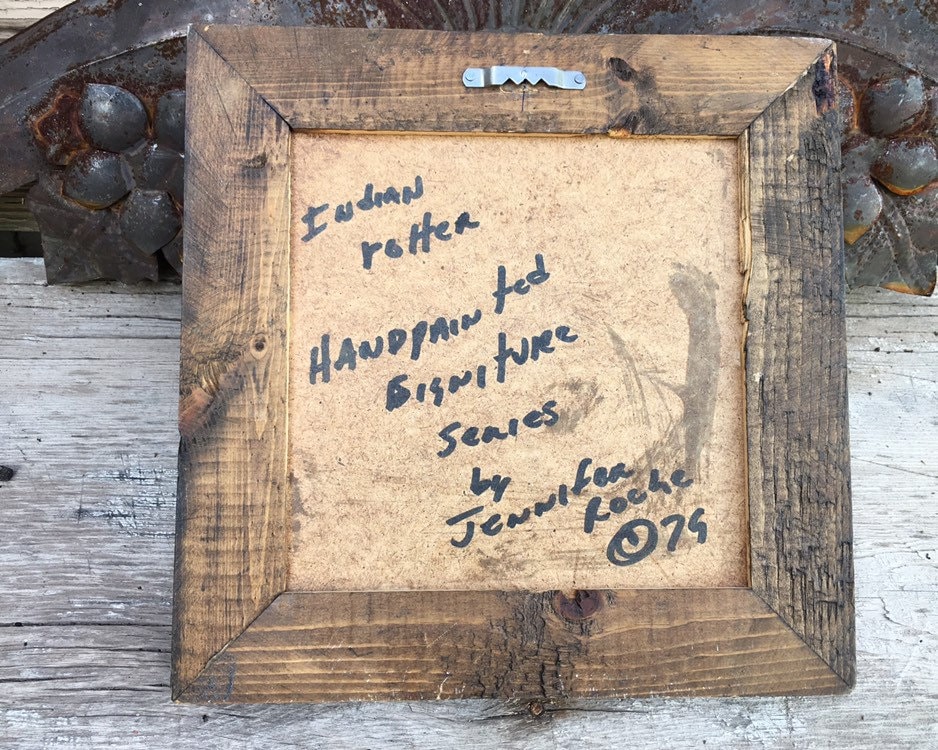 Indian
rotter
HANDPAINTED
SIGNITURE
SERIES
by
JENNIFER
Roche
©79